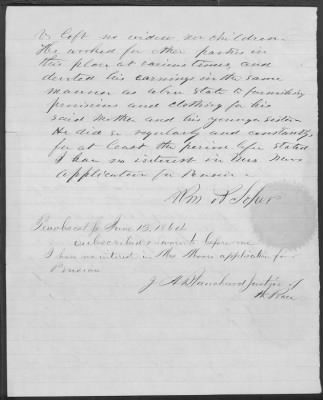 & left no widow nor children.
He worked for other parties in
this place at various times and
devoted his earnings in the same
manner as above state to furnishing
provisions and clothing for his
said Mother and his younger sister
He did so regularly and constantly
for at least the period before stated
I have no interest in Mrs
application for Pension.
Wm A
June 13, 1864
subscribed & sworn to before me
I have no interest in Mrs application for
Pension
J A Blanchard Justice of
the Peace